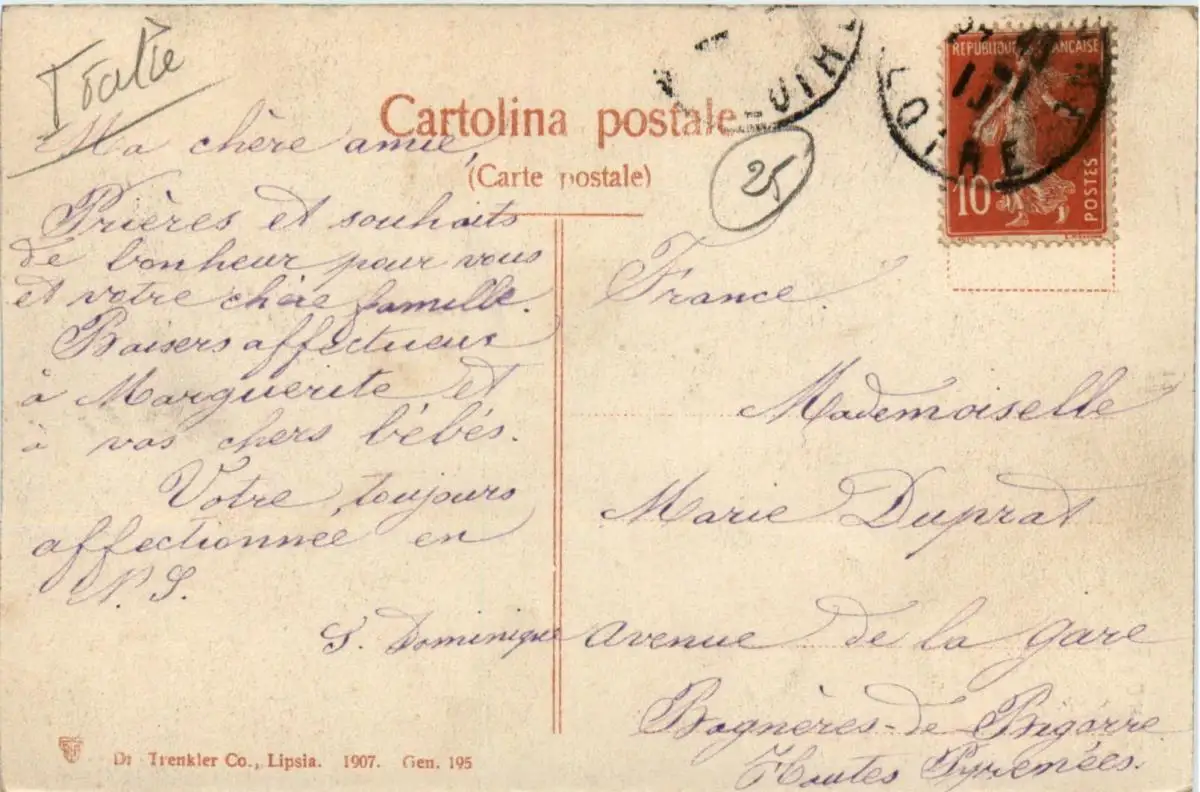 Italie
Cartolina postale
(Carte postale)
25
REPUBLIQUE FRANÇAISE
10
POSTES
LOIRE
LOIRE
Ma chère amie,
Prières et souhaits
de bonheur pour vous
et votre chère famille.
Baisers affectueux
à Marguerite et
à vos chers bébés.
Votre toujours
affectionnée en
N. S.
S. Dominique
France.
Mademoiselle
Marie Duprat
Avenue de la gare
Bagnères-de Bigorre
Hautes Pyrénées.
Dr Trenkler Co., Lipsia. 1907. Gen. 195